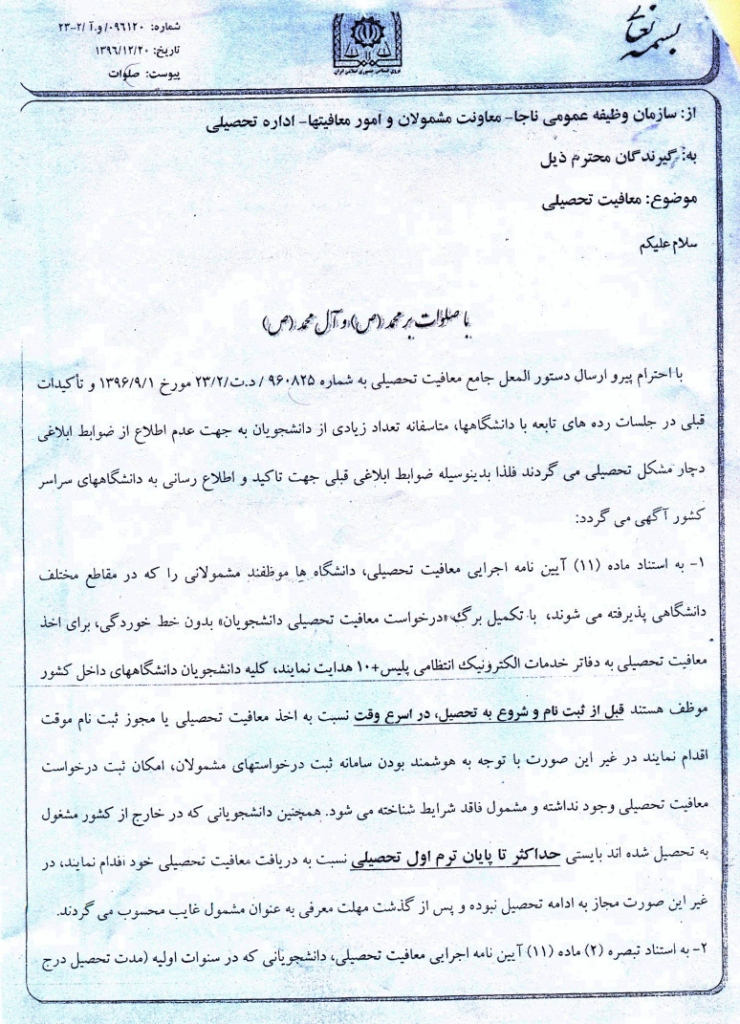 بسمه تعالی
شماره: ۰۹۶۱۲۰/و.آ/۲-۲۳
تاریخ: ۱۳۹۶/۱۲/۲۰
پیوست: صلوات
نیروی انتظامی جمهوری اسلامی ایران
از: سازمان وظیفه عمومی ناجا- معاونت مشمولان و امور معافیتها- اداره تحصیلی
به: گیرندگان محترم ذیل
موضوع: معافیت تحصیلی
سلام علیکم
با صلوات بر محمد (ص) و آل محمد (ص)
با احترام پیرو ارسال دستور المعل جامع معافیت تحصیلی به شماره ۹۶۰۸۲۵ / د.ت/۲۳/۲ مورخ ۱۳۹۶/۹/۱ و تأکیدات
قبلی در جلسات رده های تابعه با دانشگاهها، متاسفانه تعداد زیادی از دانشجویان به جهت عدم اطلاع از ضوابط ابلاغی
دچار مشکل تحصیلی می گردند فلذا بدینوسیله ضوابط ابلاغی قبلی جهت تاکید و اطلاع رسانی به دانشگاههای سراسر
کشور آگهی می گردد:
۱- به استناد ماده (۱۱) آیین نامه اجرایی معافیت تحصیلی، دانشگاه ها موظفند مشمولانی را که در مقاطع مختلف
دانشگاهی پذیرفته می شوند، با تکمیل برگ «درخواست معافیت تحصیلی دانشجویان» بدون خط خوردگی، برای اخذ
معافیت تحصیلی به دفاتر خدمات الکترونیک انتظامی پلیس+۱۰ هدایت نمایند، کلیه دانشجویان دانشگاههای داخل کشور
موظف هستند قبل از ثبت نام و شروع به تحصیل، در اسرع وقت نسبت به اخذ معافیت تحصیلی یا مجوز ثبت نام موقت
اقدام نمایند در غیر این صورت با توجه به هوشمند بودن سامانه ثبت درخواستهای مشمولان، امکان ثبت درخواست
معافیت تحصیلی وجود نداشته و مشمول فاقد شرایط شناخته می شود. همچنین دانشجویانی که در خارج از کشور مشغول
به تحصیل شده اند بایستی حداکثر تا پایان ترم اول تحصیلی نسبت به دریافت معافیت تحصیلی خود اقدام نمایند، در
غیر این صورت مجاز به ادامه تحصیل نبوده و پس از گذشت مهلت معرفی به عنوان مشمول غایب محسوب می گردند.
۲- به استناد تبصره (۲) ماده (۱۱) آیین نامه اجرایی معافیت تحصیلی، دانشجویانی که در سنوات اولیه (مدت تحصیل درج